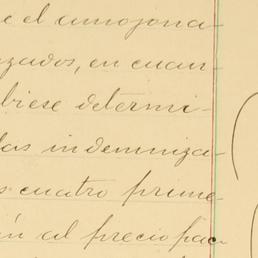 e el amojona-
zados, en cuan-
biese determi-
las indemniza-
s cuatro prime-
ón al precio pac-